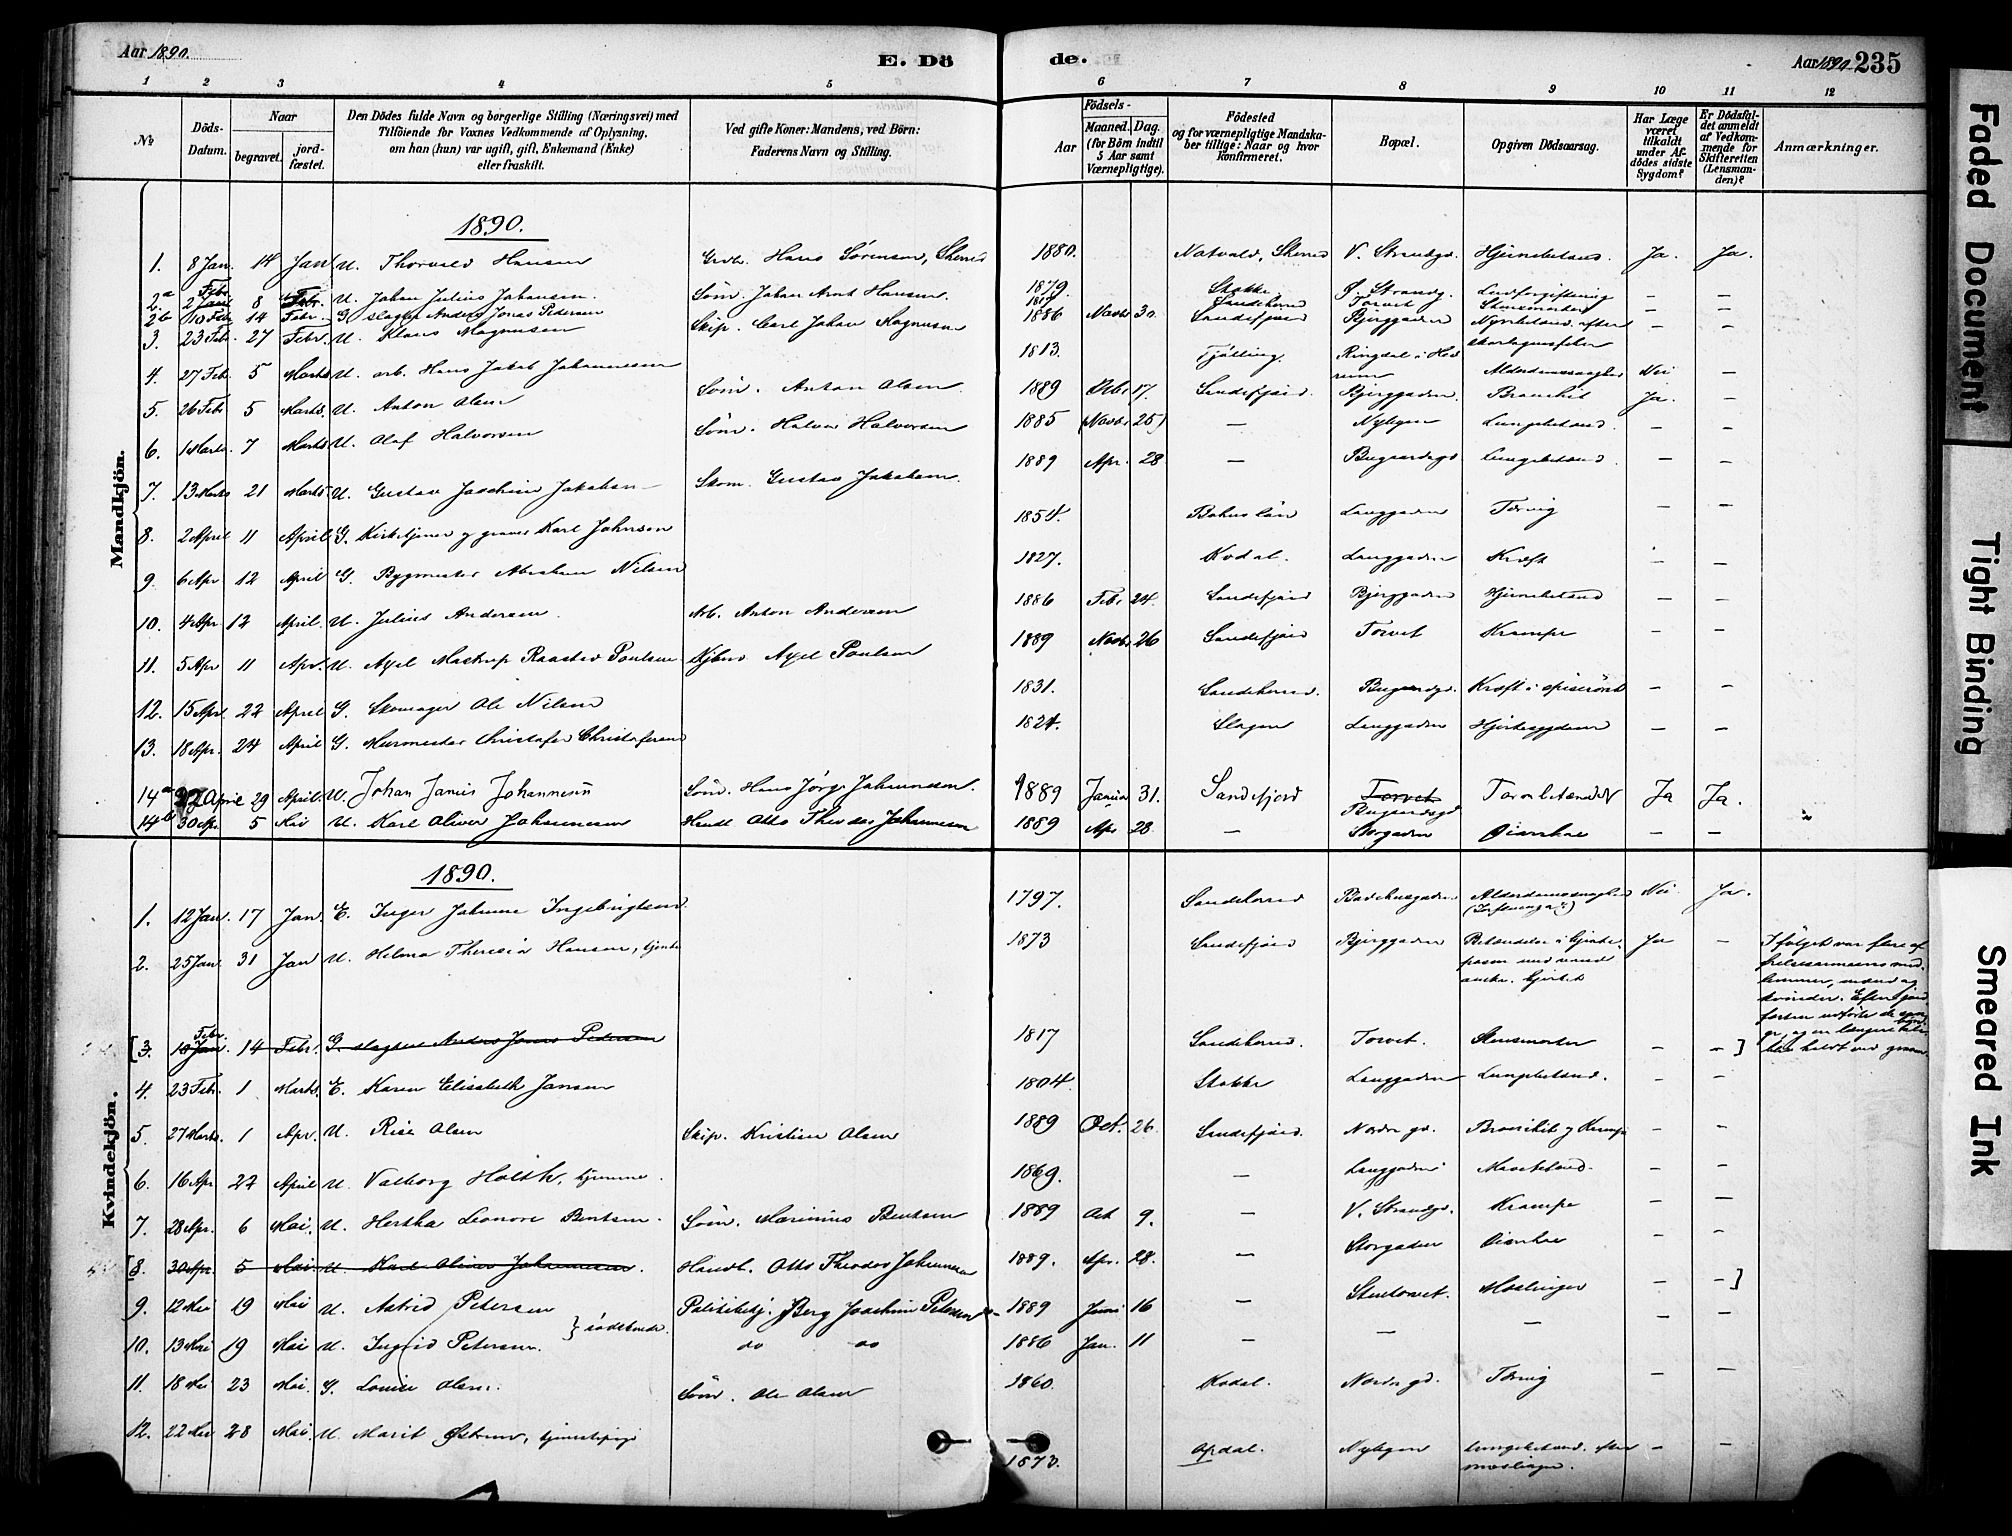 Aar 1890.
E. Dö
de.
Aar 1890.
235
1 2 3 4 5 6 7 8 9 10 11 12
No.
Döds-Datum.
Naar
begravet.
jord-fæstet.
Den Dödes fulde Navn og borgerlige Stilling (Næringsvei) med
Tilföiende for Voxnes Vedkommende af Oplysning,
om han (hun) var ugift, gift, Enkemand (Enke)
eller fraskilt.
Ved gifte Koner: Mandens, ved Börn:
Faderens Navn og Stilling.
Födsels-
Aar
Maaned. Dag.
(for Börn indtil
5 Aar samt
Værnepligtige).
Födested
og for værnepligtige Mandska-
ber tillige: Naar og hvor
konfirmeret.
Bopæl.
Opgiven Dödsaarsag.
Har Læge
været
tilkaldt
under Af-
dödes sidste
Sygdom?
Er Dödsfal-
det anmeldt
af Vedkom-
mende for
Skifteretten
(Lensman-
den)?
Anmærkninger.
Mandkjön.
1890.
1. 8 Jan. 14 Jan U. Thorvald Hansen Hans Sørensen, 1880. V. Strandgd. Hjernebetænd. Ja. Ja.
2a 2 Febr. 8 Febr. U. Johan Julius Johansen. Søm. Johan Arnt Hansen. 1879. Stokke Ø. Strandg. Blodforgiftning — —
2b 10 Febr 14 Febr. G. slagter Anders Jonas Pedersen 1817 Sandeherred Torvet Stensmerter
3. 23 Feb. 27 Febr. U. Klaus Magnussen Skip. Carl Johan Magnussen 1886 Novbr 30. Sandefjord Bjerggaden Nyrebetænd. efter skarlagensfeber — —
4. 27 Feb. 5 Marts U. arb. Hans Jakob Johannessen 1813. Tjölling. Ringdal i Hedrum Alderdomssvaghed Nei —
5. 26 Feb 5 Marts. U. Anton Olsen Søm. Anton Olsen 1889 Debr 17. Sandefjord. Bjerggaden. Bronchit Ja. —
6. 1 Marts 7 Marts U. Olaf Halvorsen Søm. Halvor Halvorsen 1885 (Novbr 25) — Nybyen Lungebetænd. — —
7. 13 Marts 21 Marts U. Gustav Joachim Jakobsen — Skom. Gustav Jakobsen. 1889 Apr. 28 — Bugaardsgd Lungebetænd. — —
8. 2 April 11 April G. Kirketjener og graver Karl Johnsen 1854. Bohus län Langgaden Tæring — —
9. 6 Apr 12 April G. Bygmester Abraham Nilsen 1827. Kodal. Langgaden Kræft — —
10. 4 Apr 12 April. U. Julius Andersen. Arb. Anton Andersen 1886 Feb. 24. Sandefjord Bjerggaden Hjernebetænd — —
11. 5 Apr 11 Apr. U. Axel Mastrup Raasted Poulsen Kjbmd Axel Poulsen 1889 Novbr 26 Sandefjord Torvet Krampe — —
12. 15 Apr. 22 April G. Skomager Ole Nilsen 1831. Sandeherred. Bugaardsgd. Kræft i spiserøret — —
13. 18 Apr. 24 April G. Murmester Christofer Christofersen 1824. Slagen Langgaden Hjertesygdom — —
14a 22 April 29 April. U. Johan Janus Johannessen Søm. Hans Jörg. Johannessen. 1889 Januar 31. Sandefjord Torvet Bugaardsgd Ja Ja.
14b 30 Apr. 5 Mai U. Karl Oliver Johannessen Handl. Otto Theodor Johannessen 1889 Apr 28 — Storgaden — —
Kvindekjön.
1890.
1. 12 Jan. 17 Jan. E. Inger Johanne Ingebrigtsen 1797. Sandeherred Badehusgaden Alderdomssvaghed (Influenza) Nei Ja.
2. 25 Jan. 31 Jan U. Helma Theresia Hansen, tjente 1873 Sandefjord Bjerggaden Betændelse i hjerteposen med vand omkr. hjertet Ja — I følget var flere af
frelsesarmeens med-
lemmer, mænd og
kvinder. Efter jord-
[3. 10 Febr Jan. 14 Febr. G. slagter Anders Jonas Pedersen 1817 Sandeherred Torvet. Stensmerter — —]
4. 23 Feb. 1 Marts. E. Karen Elisabeth Jansen 1804. Stokke Langgaden Lungebetænd. — —
5. 27 Marts. 1 Apr. U. Rise Olsen Skip. Kristian Olsen 1889 Oct. 26. Sandefjord. Nordre gd. Bronchit og Krampe — —
6. 16 Apr 22 April U. Valborg Holth, hjemme. 1869. — Langgaden Mavebetænd. — —
7. 28 Apr. 6 Mai. U. Hertha Leonore Bentsen. Søm. Marinius Bentsen 1889 Oct 9. — V. Strandgd. Krampe — —
[8. 30 Apr. 5 Mai. U. Karl Oliver Johannessen. Handl. Otto Theodor Johannessen 1889. Apr. 28. — Storgaden — —]
9. 12 Mai 19 Mai U. Astrid Petersen } søskende. Politibetj. Berg Joachim Petersen 1889 Juni 16 — Stentorvet. Meslinger — —
10. 13 Mai 19 Mai U. Ingrid Petersen. do do 1886 Jan. 11 — — —
11. 18 Mai 23 Mai. G. Louise Olsen. Søm. Ole Olsen 1860. Kodal. Nordre gd. Tæring — —
12. 22 Mai 28 Mai. U. Marit Østrem, tjenestepige 1873. Opdal. Nybyen Lungebetænd. efter meslinger. — —
Faded Document
Tight Binding
Smeared Ink